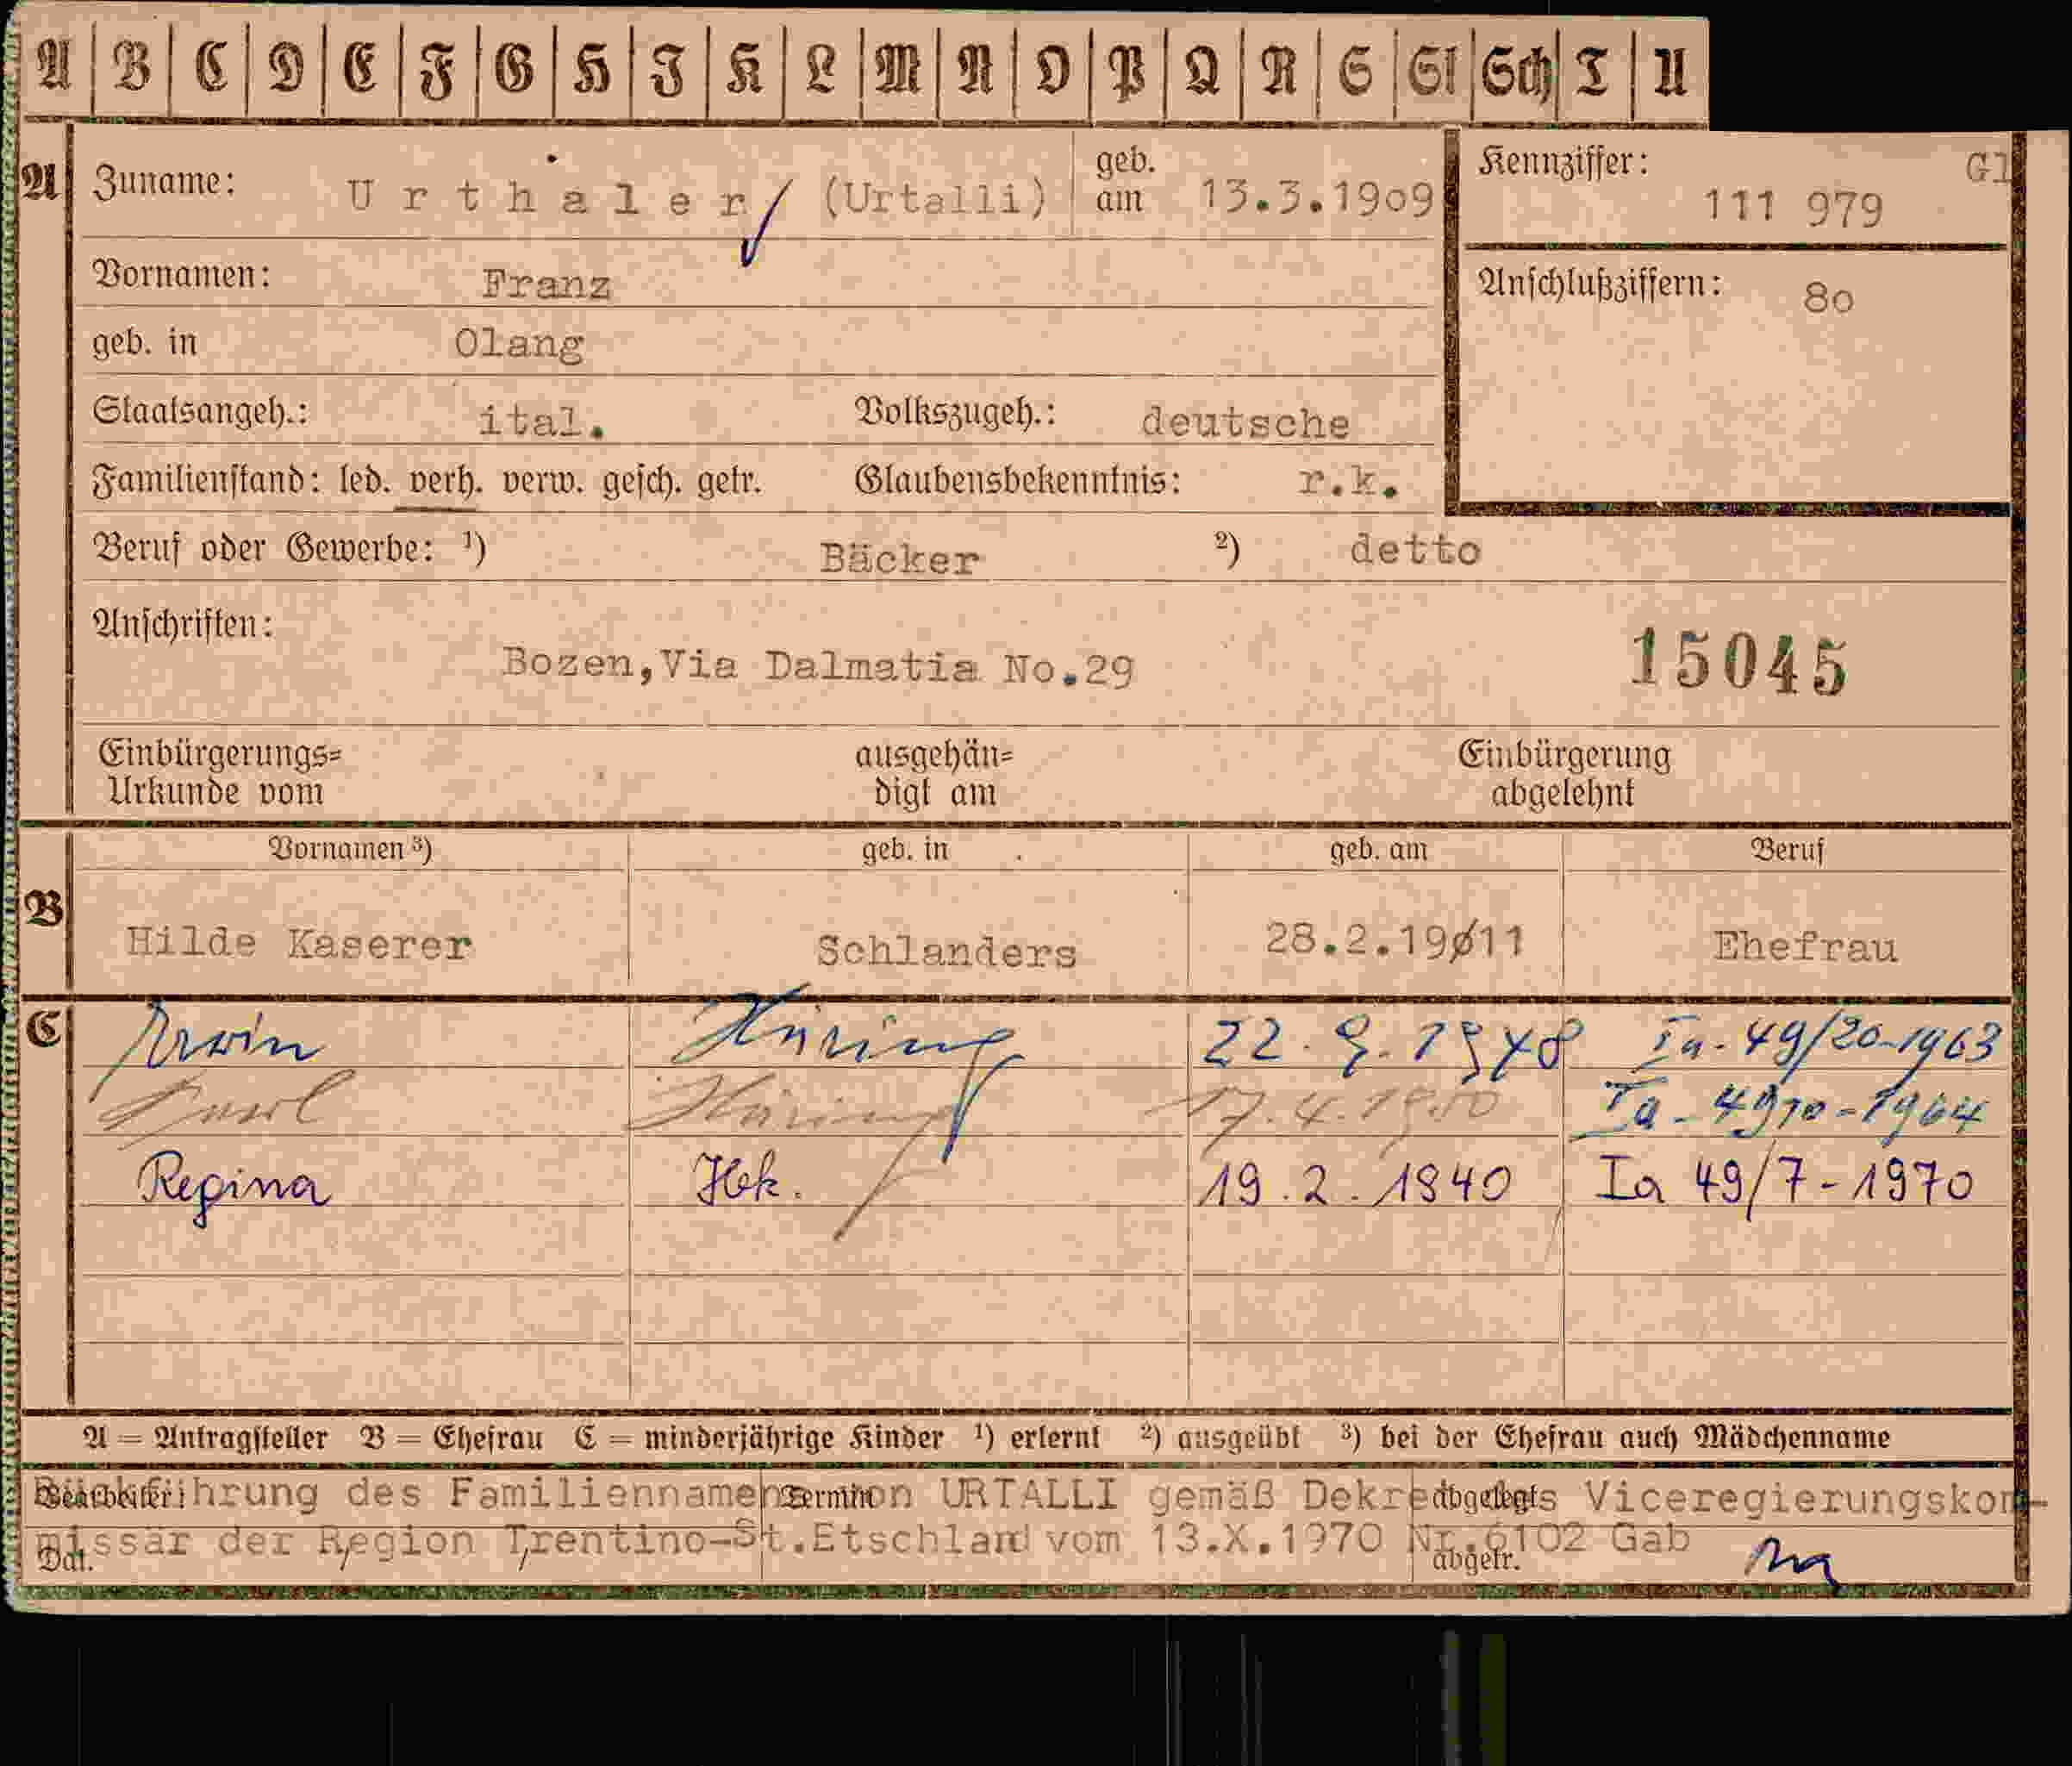 A B C D E F G H J K L M N O P Q R S St Sch T U
A Zuname: Urthaler (Urtalli) geb. am 13.3.1909
Kennziffer: 111 979 Gl
Vornamen: Franz
Anschlußziffern: 80
geb. in Olang
Staatsangeh.: ital. Volkszugeh.: deutsche
Familienstand: led. verh. verw. gesch. getr. Glaubensbekenntnis: r.k.
Beruf oder Gewerbe: ¹) Bäcker ²) detto
Anschriften: Bozen,Via Dalmatia No.29 15045
Einbürgerungs= Urkunde vom ausgehän= digt am Einbürgerung abgelehnt
Vornamen ³) geb. in geb. am Beruf
B Hilde Kaserer Schlanders 28.2.19011 Ehefrau
C Erwin 22.9.1948 Ia-49/20-1963
Karl 17.4.1950 Ia-49 -1964
Regina Hbk. 19.2.1940 Ia 49/7-1970
A = Antragsteller B = Ehefrau C = minderjährige Kinder ¹) erlernt ²) ausgeübt ³) bei der Ehefrau auch Mädchenname
Bearbeiter: Termin abgelegt
Rückführung des Familiennamens von URTALLI gemäß Dekret des Viceregierungskom-
missär der Region Trentino-St.Etschland vom 13.X.1970 Nr.6102 Gab
Dat. abgetr.